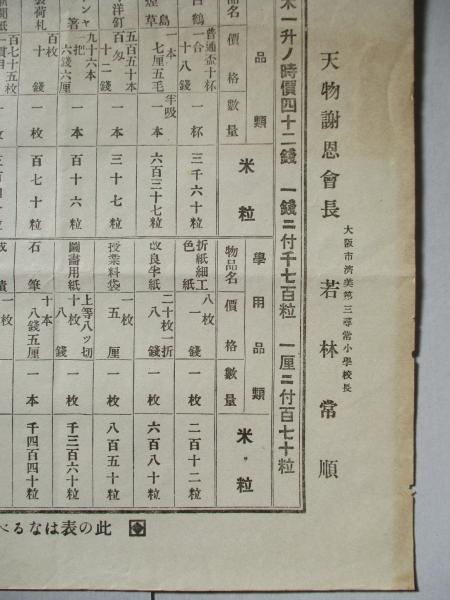 天物謝恩會長
大阪市濟美第三尋常小學校長
若林常順
米一升ノ時價四十二錢 一錢ニ付千七百粒 一厘ニ付百七十粒
品類
物品名
價格
數量
米粒
白鶴
普通盃十杯
一合
十八錢
一杯
三千六十粒
一本
半吸
七厘五毛
一本
六百三十七粒
洋釘
五百五十本
百匁
十二錢
一本
三十七粒
九十六本
一把
六錢六厘
一本
百十六粒
荷札
百枚
十錢
一枚
百七十粒
百七十五枚
一枚
學用品類
物品名
價格
數量
米粒
折紙細工色紙
八枚
一錢
一枚
二百十二粒
改良半紙
二十枚一折
八錢
一枚
六百八十粒
授業料袋
一枚
五厘
一枚
八百五十粒
圖畫用紙
上等八ッ切
十八枚
錢
一枚
千三百六十粒
石筆
十本
八錢五厘
一本
千四百四十粒
一枚
此の表はなるべ